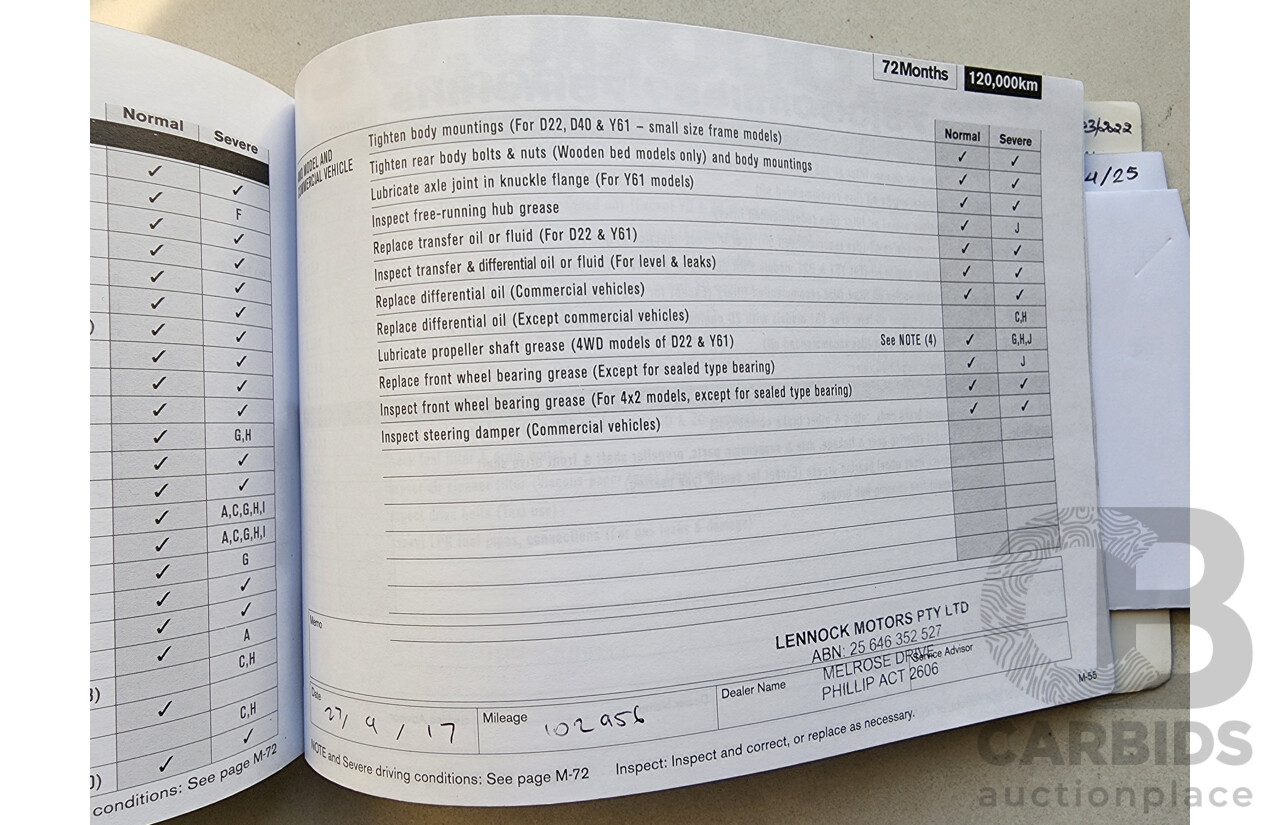 Normal
Severe
✓ ✓
✓ F
✓ ✓
✓ ✓
✓ ✓
✓ ✓
✓ ✓
✓ ✓
✓ ✓
✓ ✓
✓ G,H
✓ ✓
✓ ✓
✓ A,C,G,H,I
✓ A,C,G,H,I
✓ G
✓ ✓
✓ ✓
✓ A
C,H
✓ C,H
✓ ✓
conditions: See page M-72
72Months 120,000km
Normal Severe
COMMERCIAL VEHICLE
Tighten body mountings (For D22, D40 & Y61 – small size frame models) ✓ ✓
Tighten rear body bolts & nuts (Wooden bed models only) and body mountings ✓ ✓
Lubricate axle joint in knuckle flange (For Y61 models) ✓ ✓
Inspect free-running hub grease ✓ J
Replace transfer oil or fluid (For D22 & Y61) ✓ ✓
Inspect transfer & differential oil or fluid (For level & leaks) ✓ ✓
Replace differential oil (Commercial vehicles) ✓ ✓
Replace differential oil (Except commercial vehicles) C,H
Lubricate propeller shaft grease (4WD models of D22 & Y61) See NOTE (4) ✓ G,H,J
Replace front wheel bearing grease (Except for sealed type bearing) ✓ J
Inspect front wheel bearing grease (For 4x2 models, except for sealed type bearing) ✓ ✓
Inspect steering damper (Commercial vehicles) ✓ ✓
Memo
LENNOCK MOTORS PTY LTD
ABN: 25 646 352 527
MELROSE DRIVE
PHILLIP ACT 2606
Date 27/4/17
Mileage 102956
Dealer Name
Service Advisor
M-55
NOTE and Severe driving conditions: See page M-72 Inspect: Inspect and correct, or replace as necessary.
3/2022
4/25
CB
CARBIDS
auctionplace